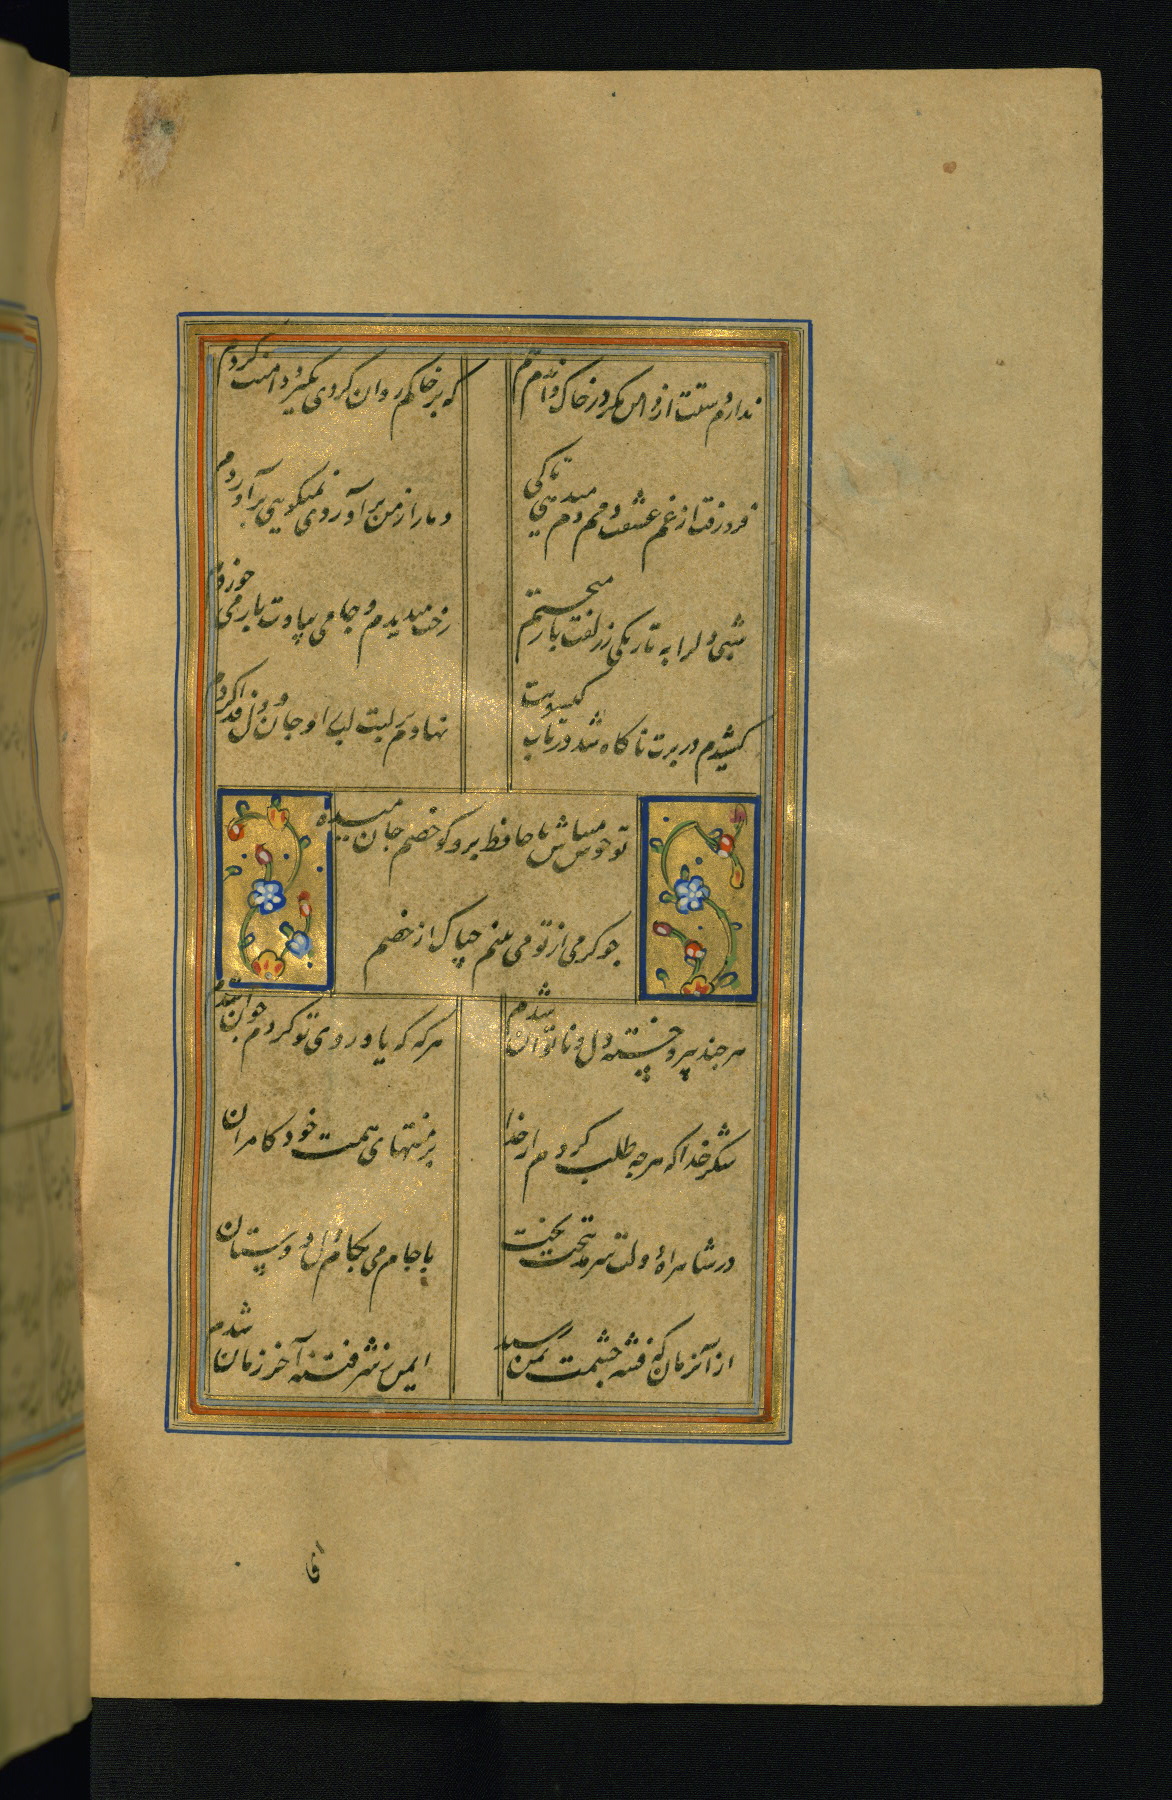 ندارم دستت از دامن مگر در خاک و آندم هم
که بر خاکم روان گردی بگیرد دامنت گردم
فرو رفت از غم عشقت دمم دم میدهی تا کی
دمار از من برآوردی نمیگویی برآوردم
شبی دلرا به تاریکی ز زلفت باز میجستم
رخت میدیدم و جامی هلالی باز می خوردم
کشیدم در برت ناگاه و شد در تاب گیسویت
نهادم بر لبت لب را و جان و دل فدا کردم
تو خوش میباش با حافظ برو گو خصم جان میده
چو گرمی از تو می بینم چه باک از خصم
هر چند پیر و خسته دل و ناتوان شدم
هر گه که یاد روی تو کردم جوان شدم
شکر خدا که هر چه طلب کردم از خدا
بر منتهای همت خود کامران
در شاهراه دولت سرمد بتخت بخت
با جام می بکام دل دوستان
از آن زمان که فتنه چشمت بمن رسید
ایمن ز شر فتنه آخر زمان شدم